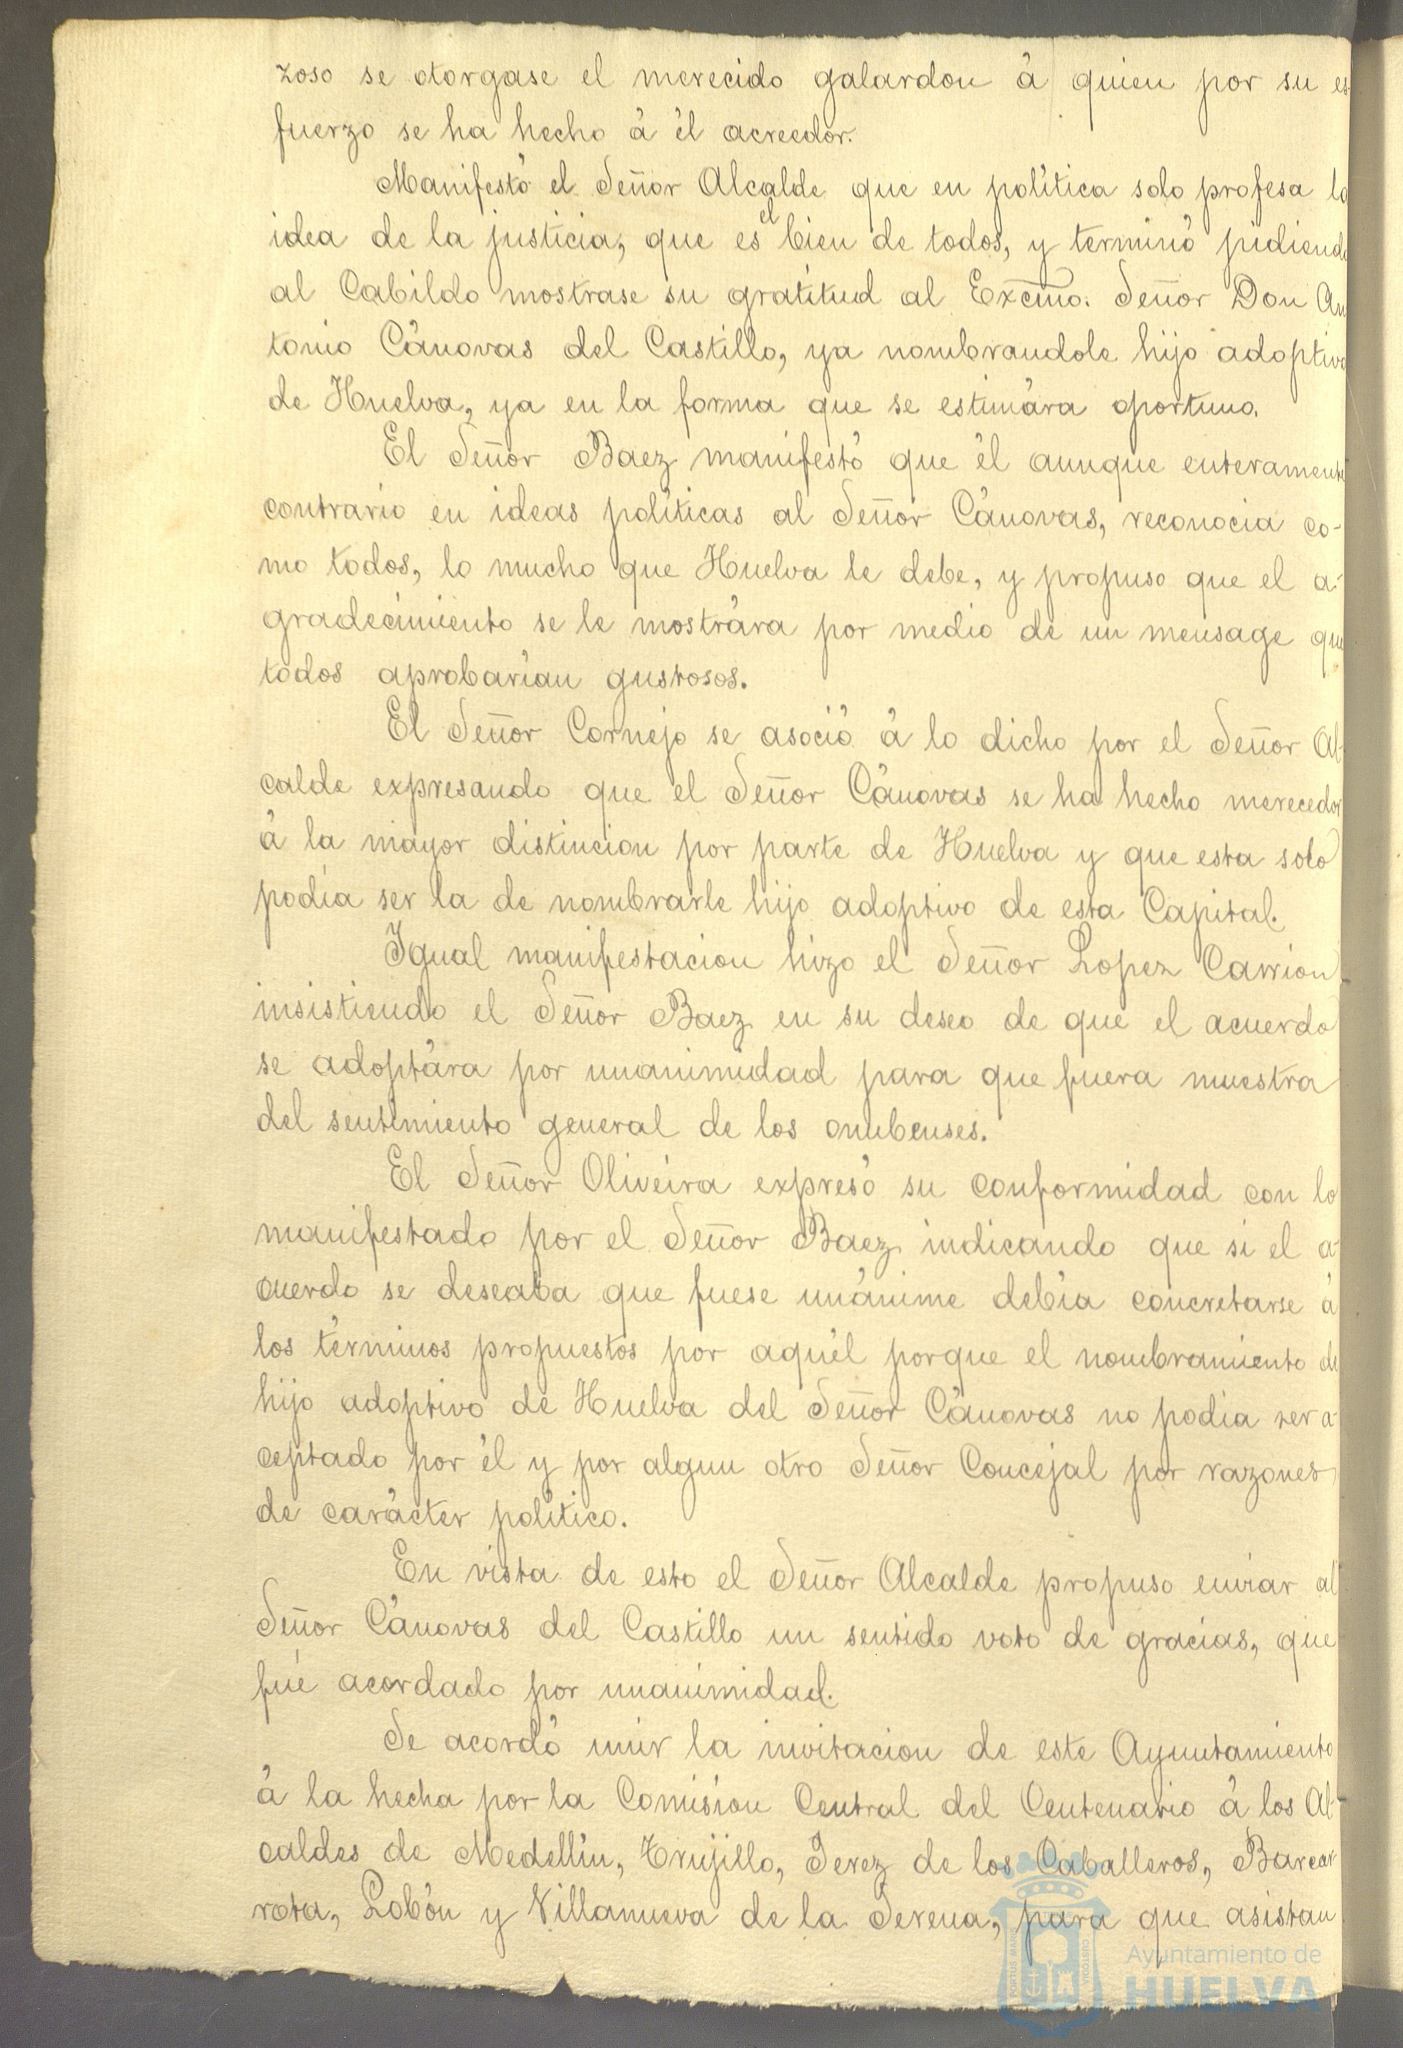 zoso se otorgase el merecido galardon á quien por su es
fuerzo se ha hecho á él acreedor.
Manifestó el Señor Alcalde que en política solo profesa la
idea de la justicia, que es el bien de todos, y terminó pidiendo
al Cabildo mostrase su gratitud al Excmo. Señor Don An
tonio Cánovas del Castillo, ya nombrandole hijo adoptivo
de Huelva, ya en la forma que se estimára oportuno.
El Señor Baez manifestó que él aunque enteramente
contrario en ideas políticas al Señor Cánovas, reconocia co-
mo todos, lo mucho que Huelva le debe, y propuso que el a-
gradecimiento se le mostrára por medio de un mensage que
todos aprobarían gustosos.
El Señor Cornejo se asoció á lo dicho por el Señor Al-
calde expresando que el Señor Cánovas se ha hecho merecedor
á la mayor distincion por parte de Huelva y que esta solo
podía ser la de nombrarle hijo adoptivo de esta Capital.
Igual manifestacion hizo el Señor Lopez Carrion
insistiendo el Señor Baez en su deseo de que el acuerdo
se adoptára por unanimidad para que fuera muestra
del sentimiento general de los onubenses.
El Señor Oliveira expresó su conformidad con lo
manifestado por el Señor Baez indicando que si el a-
cuerdo se deseaba que fuese unánime debía concretarse á
los términos propuestos por aquél porque el nombramiento de
hijo adoptivo de Huelva del Señor Cánovas no podia ser a-
ceptado por él y por algun otro Señor Concejal por razones
de carácter político.
En vista de esto el Señor Alcalde propuso enviar al
Señor Cánovas del Castillo un sentido voto de gracias, que
fué acordado por unanimidad.
Se acordó unir la invitacion de este Ayuntamiento
á la hecha por la Comisión Central del Centenario á los Al-
caldes de Medellín, Trujillo, Jerez de los Caballeros, Barcar
rota, Lobón y Villanueva de la Serena, para que asistan
Ayuntamiento de
HUELVA